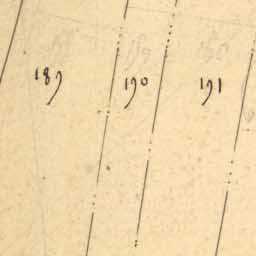 189 190 191